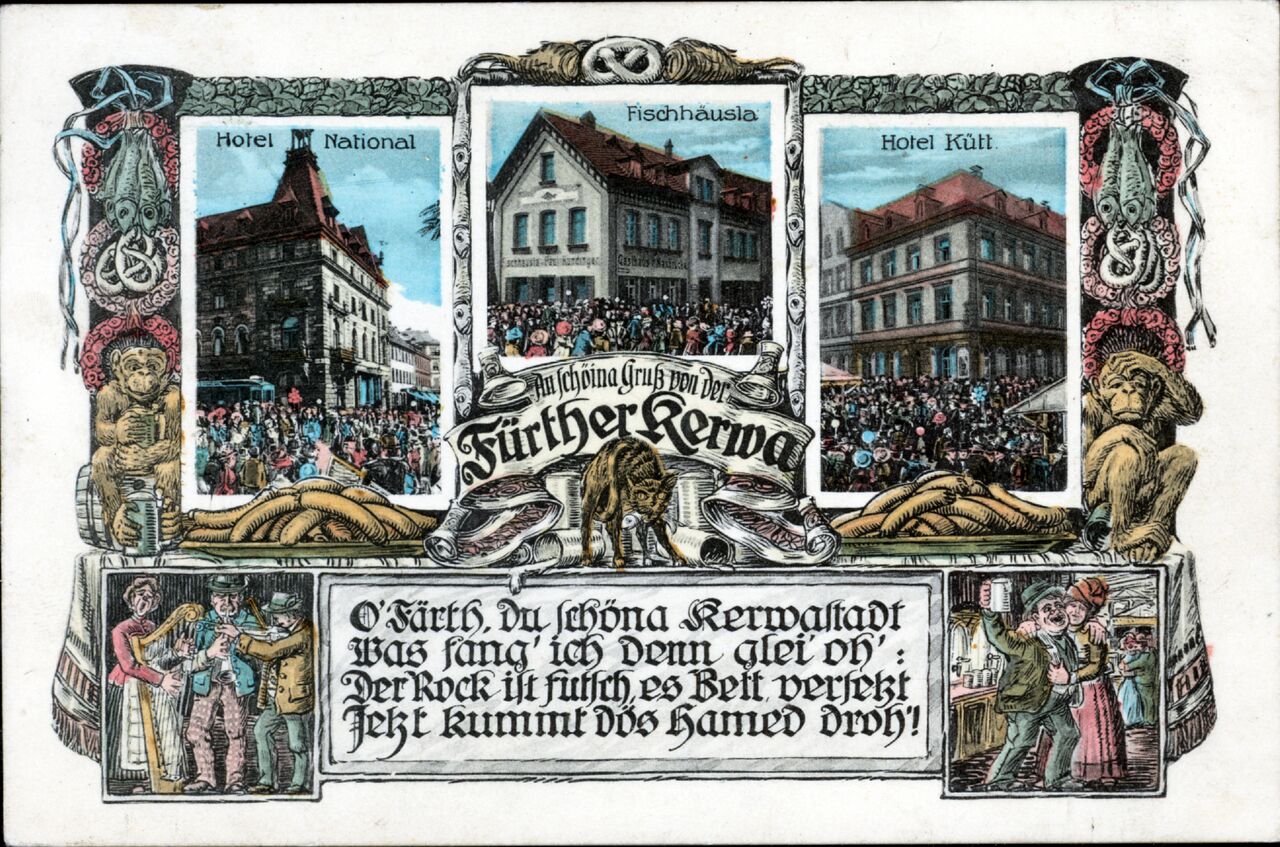 Hotel National
Fischhäusla
Hotel Kütt.
Fischhäusla-Paul Kundinger
Gasthaus
An schöina Gruß von der
Fürther Kerwa
O' Färth, Du schöna Kerwastadt
Was fang' ich denn glei' oh' :
Der Rock ist futsch, es Bett versetzt
Jetzt kummt dös Hamed droh'!